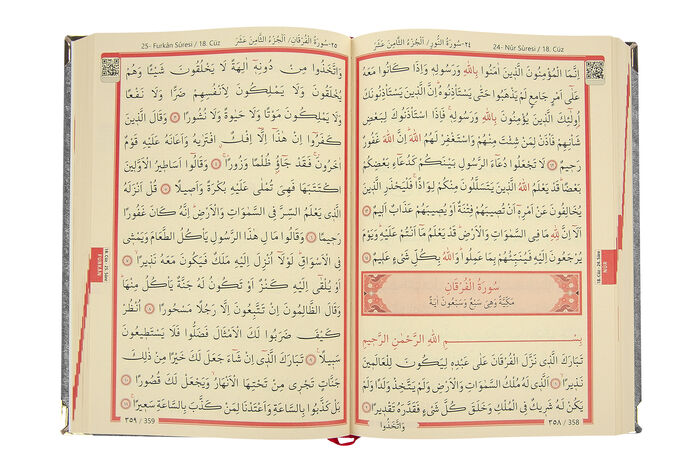 24- Nûr Sûresi / 18. Cüz ٢٤- سُورَةُ النُّورِ / اَلْجُزْءُ الثَّامِنَ عَشَرَ
اِنَّمَا الْمُؤْمِنُونَ الَّذ۪ينَ اٰمَنُوا بِاللّٰهِ وَرَسُولِه۪ وَاِذَا كَانُوا مَعَهُ
عَلٰٓى اَمْرٍ جَامِعٍ لَمْ يَذْهَبُوا حَتّٰى يَسْتَأْذِنُوهُۜ اِنَّ الَّذ۪ينَ يَسْتَأْذِنُونَكَ
اُو۬لٰٓئِكَ الَّذ۪ينَ يُؤْمِنُونَ بِاللّٰهِ وَرَسُولِه۪ۚ فَاِذَا اسْتَأْذَنُوكَ لِبَعْضِ
شَأْنِهِمْ فَأْذَنْ لِمَنْ شِئْتَ مِنْهُمْ وَاسْتَغْفِرْ لَهُمُ اللّٰهَۜ اِنَّ اللّٰهَ غَفُورٌ
رَح۪يمٌ ﴿٦٢﴾ لَا تَجْعَلُوا دُعَٓاءَ الرَّسُولِ بَيْنَكُمْ كَدُعَٓاءِ بَعْضِكُمْ
بَعْضًاۜ قَدْ يَعْلَمُ اللّٰهُ الَّذ۪ينَ يَتَسَلَّلُونَ مِنْكُمْ لِوَاذًاۚ فَلْيَحْذَرِ الَّذ۪ينَ
يُخَالِفُونَ عَنْ اَمْرِه۪ٓ اَنْ تُص۪يبَهُمْ فِتْنَةٌ اَوْ يُص۪يبَهُمْ عَذَابٌ اَل۪يمٌ ﴿٦٣﴾
اَلَٓا اِنَّ لِلّٰهِ مَا فِي السَّمٰوَاتِ وَالْاَرْضِۜ قَدْ يَعْلَمُ مَٓا اَنْتُمْ عَلَيْهِۜ وَيَوْمَ
يُرْجَعُونَ اِلَيْهِ فَيُنَبِّئُهُمْ بِمَا عَمِلُواۜ وَاللّٰهُ بِكُلِّ شَيْءٍ عَل۪يمٌ ﴿٦٤﴾
سُورَةُ الْفُرْقَانِ
مَكِّيَّةٌ وَهِيَ سَبْعٌ وَسَبْعُونَ اٰيَةً
بِسْمِ اللّٰهِ الرَّحْمٰنِ الرَّح۪يمِ
تَبَارَكَ الَّذ۪ي نَزَّلَ الْفُرْقَانَ عَلٰى عَبْدِه۪ لِيَكُونَ لِلْعَالَم۪ينَ
نَذ۪يرًاۙ ﴿١﴾ اَلَّذ۪ي لَهُ مُلْكُ السَّمٰوَاتِ وَالْاَرْضِ وَلَمْ يَتَّخِذْ وَلَدًا وَلَمْ
يَكُنْ لَهُ شَر۪يكٌ فِي الْمُلْكِ وَخَلَقَ كُلَّ شَيْءٍ فَقَدَّرَهُ تَقْد۪يرًا ﴿٢﴾
٣٥٨ / 358
وَاتَّخَذُوا
18. Cüz - 24. Sûre
NÛR
25- Furkân Sûresi / 18. Cüz ٢٥- سُورَةُ الْفُرْقَانِ / اَلْجُزْءُ الثَّامِنَ عَشَرَ
وَاتَّخَذُوا مِنْ دُونِه۪ٓ اٰلِهَةً لَا يَخْلُقُونَ شَيْـًٔا وَهُمْ
يُخْلَقُونَ وَلَا يَمْلِكُونَ لِاَنْفُسِهِمْ ضَرًّا وَلَا نَفْعًا
وَلَا يَمْلِكُونَ مَوْتًا وَلَا حَيٰوةً وَلَا نُشُورًا ﴿٣﴾ وَقَالَ الَّذ۪ينَ
كَفَرُٓوا اِنْ هٰذَٓا اِلَّٓا اِفْكٌۨ افْتَرٰيهُ وَاَعَانَهُ عَلَيْهِ قَوْمٌ
اٰخَرُونَۚ فَقَدْ جَٓاؤُ۫ ظُلْمًا وَزُورًاۚ ﴿٤﴾ وَقَالُٓوا اَسَاط۪يرُ الْاَوَّل۪ينَ
اكْتَتَبَهَا فَهِيَ تُمْلٰى عَلَيْهِ بُكْرَةً وَاَص۪يلًا ﴿٥﴾ قُلْ اَنْزَلَهُ
الَّذ۪ي يَعْلَمُ السِّرَّ فِي السَّمٰوَاتِ وَالْاَرْضِۜ اِنَّهُ كَانَ غَفُورًا
رَح۪يمًا ﴿٦﴾ وَقَالُوا مَالِ هٰذَا الرَّسُولِ يَأْكُلُ الطَّعَامَ وَيَمْش۪ي
فِي الْاَسْوَاقِۜ لَوْلَٓا اُنْزِلَ اِلَيْهِ مَلَكٌ فَيَكُونَ مَعَهُ نَذ۪يرًاۙ ﴿٧﴾
اَوْ يُلْقٰٓى اِلَيْهِ كَنْزٌ اَوْ تَكُونُ لَهُ جَنَّةٌ يَأْكُلُ مِنْهَاۜ
وَقَالَ الظَّالِمُونَ اِنْ تَتَّبِعُونَ اِلَّا رَجُلًا مَسْحُورًا ﴿٨﴾ اُنْظُرْ
كَيْفَ ضَرَبُوا لَكَ الْاَمْثَالَ فَضَلُّوا فَلَا يَسْتَط۪يعُونَ
سَب۪يلًا ﴿٩﴾ تَبَارَكَ الَّذ۪ٓي اِنْ شَٓاءَ جَعَلَ لَكَ خَيْرًا مِنْ ذٰلِكَ
جَنَّاتٍ تَجْر۪ي مِنْ تَحْتِهَا الْاَنْهَارُۙ وَيَجْعَلْ لَكَ قُصُورًا ﴿١٠﴾
بَلْ كَذَّبُوا بِالسَّاعَةِ وَاَعْتَدْنَا لِمَنْ كَذَّبَ بِالسَّاعَةِ سَع۪يرًاۚ ﴿١١﴾
٣٥٩ / 359
18. Cüz - 25. Sûre
FURKÂN